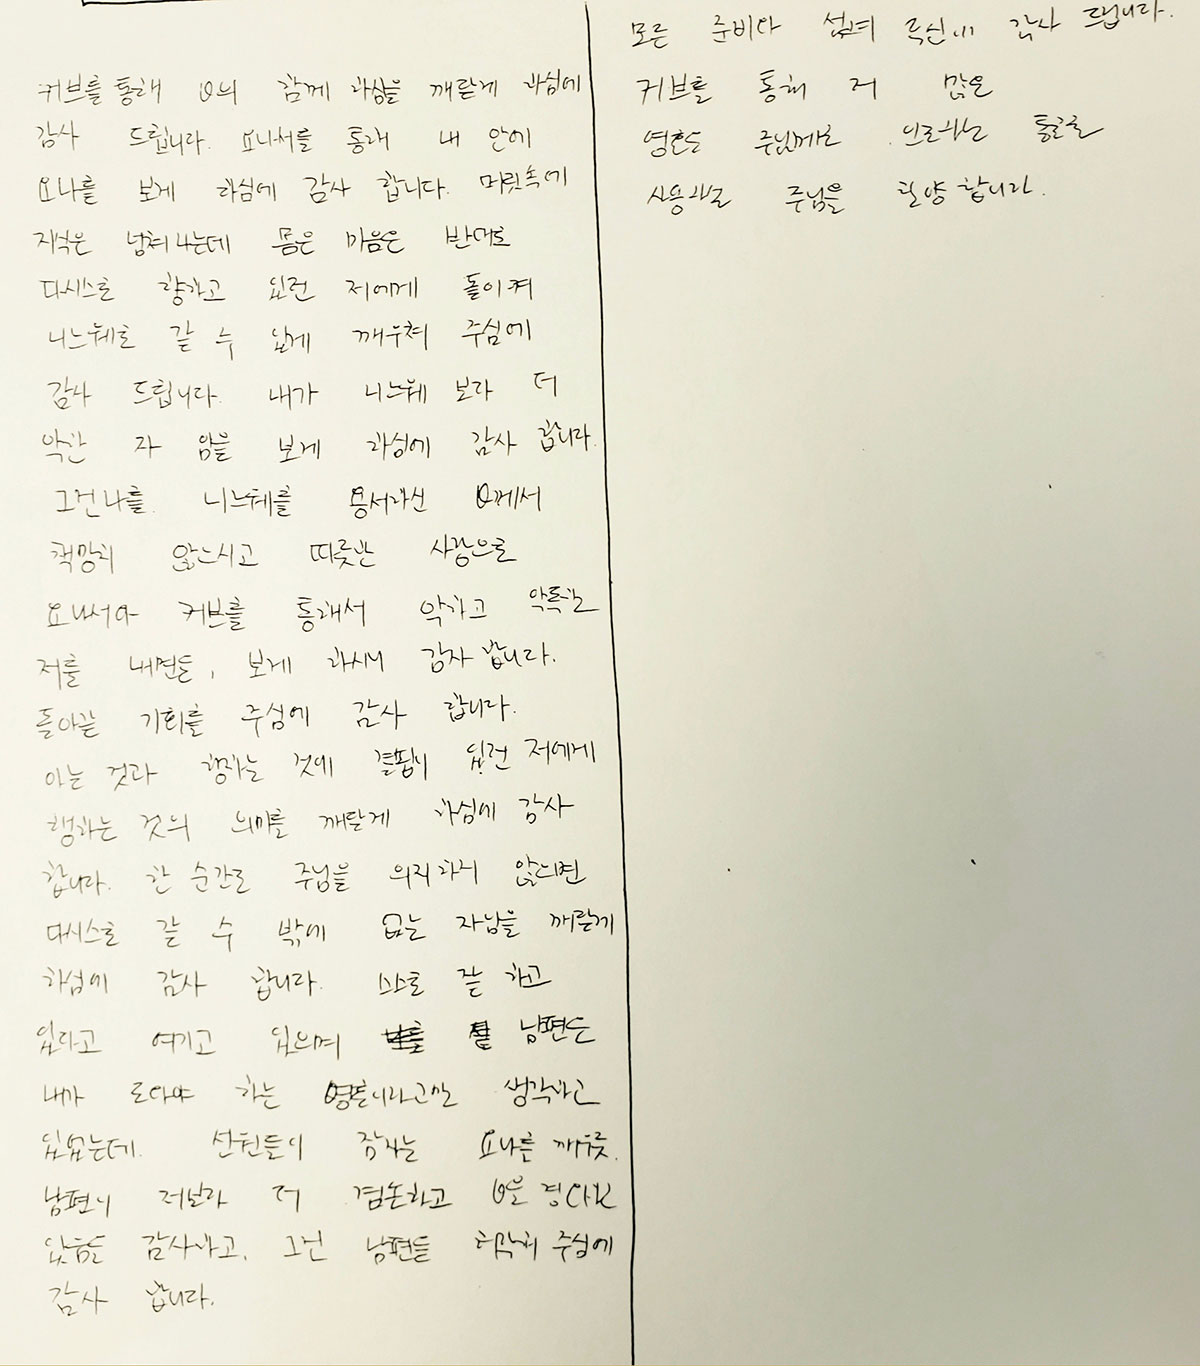 커브를 통해 의 함께 하심을 깨닫게 하심에
감사 드립니다. 요나서를 통해 내 안에
요나를 보게 하심에 감사 합니다. 머릿속에
지식은 넘쳐나는데 몸은 마음은 반대로
다시스로 향하고 있던 저에게 돌이켜
니느웨로 갈 수 있게 깨우쳐 주심에
감사 드립니다. 내가 니느웨 보다 더
악한 자 임을 보게 하심에 감사 합니다.
그런 나를. 니느웨를 용서하신 께서
책망치 않느시고 따뜻한 사랑으로
요나서와 커브를 통해서 악하고 악독한
저를 내면을, 보게 하시니 감사 합니다.
돌아갈 기회를 주심에 감사 합니다.
아는 것과 행하는 것에 결핍이 있던 저에게
행하는 것의 의미를 깨닫게 하심에 감사
합니다. 한 순간도 주님을 의지하지 않느면
다시스로 갈 수 밖에 없는 자임을 깨닫게
하심에 감사 합니다. 스스로 잘 하고
있다고 여기고 있으며 남편은
내가 도와야 하는 영혼이라고만 생각하고
있었는데. 선원들이 잠자는 요나를 깨우듯.
남편이 저보다 더 겸손하고 을 경외하고
있음을 감사하고, 그런 남편을 허락해 주심에
감사 합니다.
모든 준비와 섬겨 주신 감사 드립니다.
커브를 통해 저 많은
영혼도 주님께로 통로로
사용 주님을 찬양 합니다.